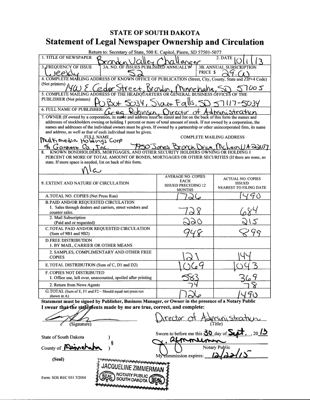 STATE OF SOUTH DAKOTA
Statement of Legal Newspaper Ownership and Circulation
Return to: Secretary of State, 500 E. Capitol, Pierre, SD 57501-5077
1. TITLE OF NEWSPAPER
Brandon Valley Challenger
2. DATE
10/1/13
3. FREQUENCY OF ISSUE
Weekly
3A. NO. OF ISSUES PUBLISHED ANNUALLY
52
3B. ANNUAL SUBSCRIPTION
PRICE $
4. COMPLETE MAILING ADDRESS OF KNOWN OFFICE OF PUBLICATION (Street, City, County, State and ZIP+4 Code)
(Not printers)
E Cedar Street, Brandon, Minnehaha, SD 57005
5. COMPLETE MAILING ADDRESS OF THE HEADQUARTERS OF GENERAL BUSINESS OFFICES OF THE
PUBLISHER (Not printer)
PO Box 5034 Sioux Falls, SD 57117-5034
6. FULL NAME OF PUBLISHER
Director of Administration
7. OWNER (If owned by a corporation, its name and address must be stated and list on the back of this form the names and
addresses of stockholders owning or holding 1 percent or more of total amount of stock. If not owned by a corporation, the
names and addresses of the individual owners must be given. If owned by a partnership or other unincorporated firm, its name
and address, as well as that of each individual must be given.
FULL NAME
COMPLETE MAILING ADDRESS
Multimedia Holdings Corp
8. KNOWN BONDHOLDERS, MORTGAGES, AND OTHER SECURITY HOLDERS OWNING OR HOLDING 1
PERCENT OR MORE OF TOTAL AMOUNT OF BONDS, MORTGAGES OR OTHER SECURITIES (If there are none, so
state. If more space is needed, list on back of this form.
n/a
9. EXTENT AND NATURE OF CIRCULATION
AVERAGE NO. COPIES
EACH
ISSUED PRECEDING 12
MONTHS
ACTUAL NO. COPIES
ISSUED
NEAREST TO FILING DATE
A. TOTAL NO. COPIES (Net Press Run)
1726
1490
B. PAID AND/OR REQUESTED CIRCULATION
1. Sales through dealers and carriers, street vendors and
counter sales.
728
684
2. Mail Subscription
(Paid and or requested)
220
215
C. TOTAL PAID AND/OR REQUESTED CIRCULATION
(Sum of 9B1 and 9B2)
948
899
D. FREE DISTRIBUTION
1. BY MAIL, CARRIER OR OTHER MEANS
2. SAMPLES, COMPLIMENTARY AND OTHER FREE
COPIES
121
144
E. TOTAL DISTRIBUTION (Sum of C, D1 and D2)
1069
1043
F. COPIES NOT DISTRIBUTED
1. Office use, left over, unaccounted, spoiled after printing
583
369
2. Return from News Agents
74
78
G. TOTAL (Sum of E, F1 and F2 - Should equal net press run
shown in A)
1726
1490
Statement must be signed by Publisher, Business Manager, or Owner in the presence of a Notary Public
I swear that the statements made by me are true, correct, and complete:
(Signature)
Director of Administration
(Title)
State of South Dakota )
Sworn to before me this 30 day of Sept., 2013
County of Minnehaha )
Notary Public
(Seal)
My commission expires: 12/22/15
JACQUELINE ZIMMERMAN
NOTARY PUBLIC
SOUTH DAKOTA